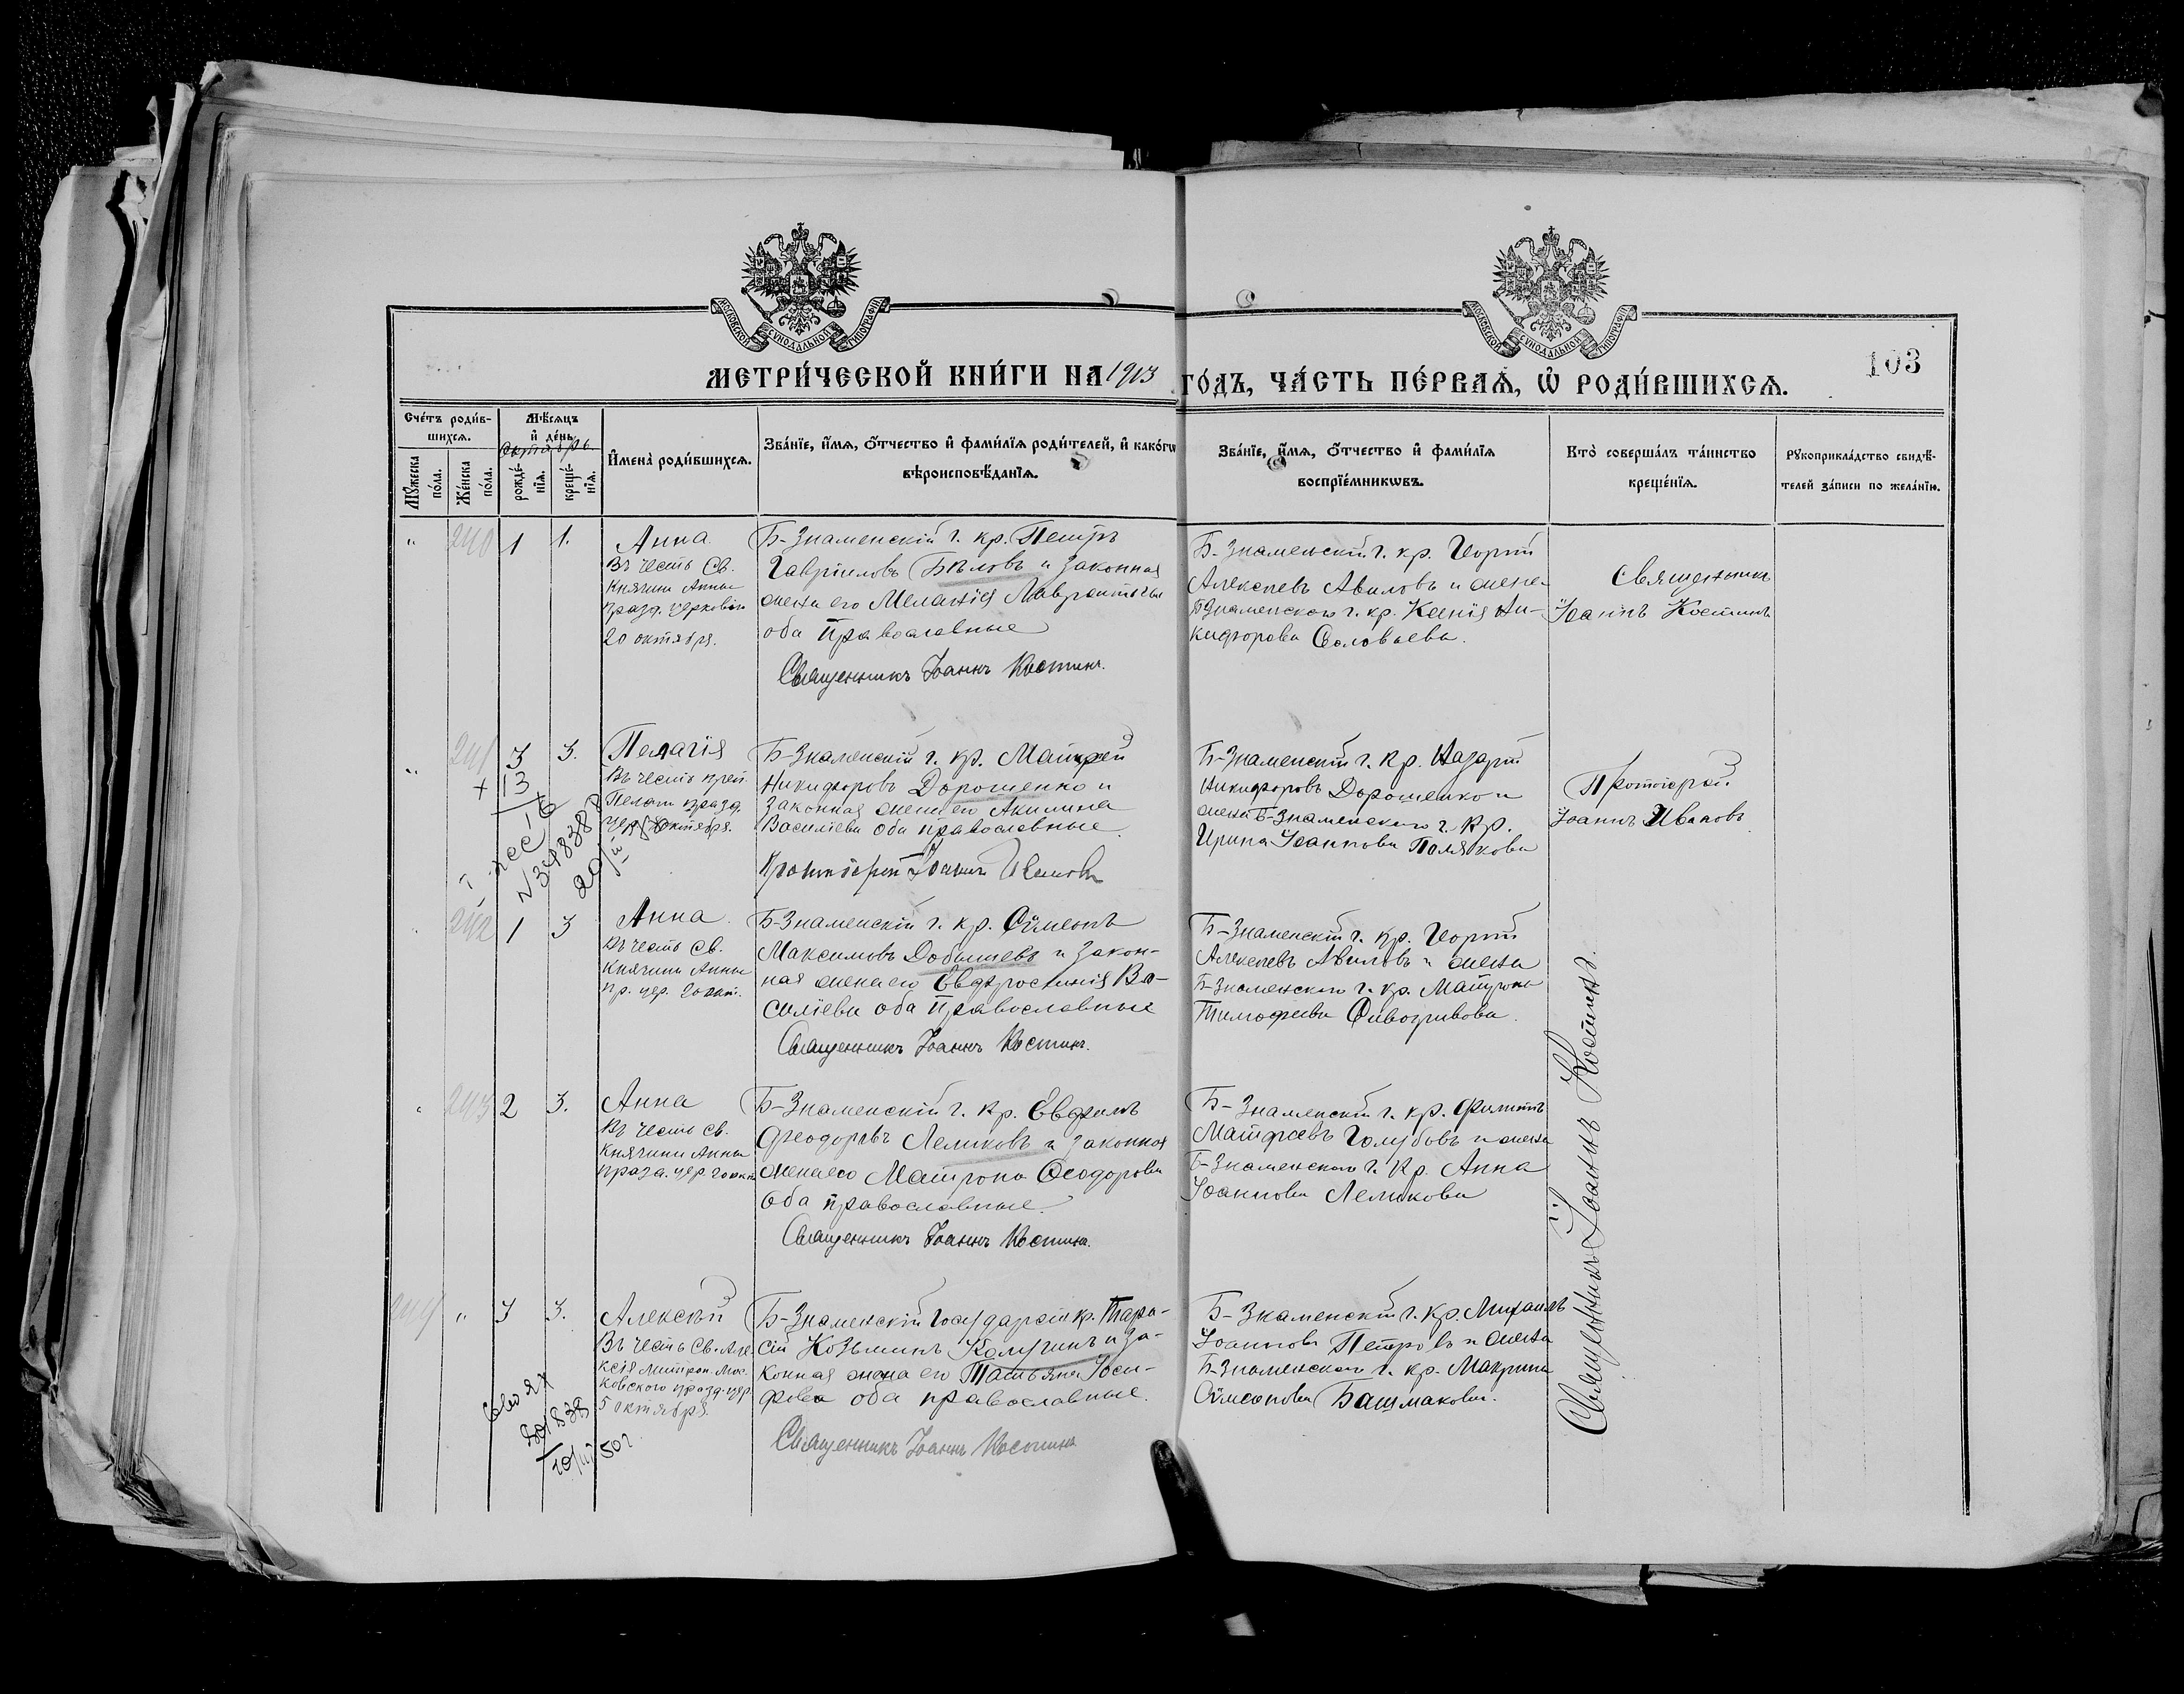 МОСКОВСКОЙ СУНОДАЛЬНОЙ ТИПОГРАФІИ
МОСКОВСКОЙ СУНОДАЛЬНОЙ ТИПОГРАФІИ
МЕТРИ́ЧЕСКОЙ КНИ́ГИ НА 1913 ГО́ДЪ, ЧА́СТЬ ПЕ́РВАѦ, Ѡ҆ РОДИ́ВШИХСѦ.
103
Сче́тъ роди́вшихсѧ.
Мꙋ́жеска по́ла.
Же́нска по́ла.
Мѣ́сѧцъ и҆ де́нь
Октябрь
рожде́нїѧ.
креще́нїѧ.
И҆мена̀ роди́вшихсѧ.
Зва́нїе, и҆́мѧ, ѻ҆́тчество и҆ фами́лїѧ роди́телей, и҆ како́гѡ
вѣроисповѣ́данїѧ.
Зва́нїе, и҆́мѧ, ѻ҆́тчество и҆ фами́лїѧ
воспрїе́мникѡвъ.
Кто̀ соверша́лъ та́инство
креще́нїѧ.
Рꙋкоприкла́дство свидѣ́-
телей за́писи по жела́нїю.
240 1 1.
Анна
Въ честь Св.
Княгини Анны
празд. церковію
20 октября.
Б-Знаменскій г. кр. Петръ
Гавріиловъ Бѣловъ и законная
жена его Меланія Лаврентіева
оба православные
Священникъ Іоаннъ Костинъ.
Б-Знаменскій г. кр. Георгій
Алексѣевъ Авиловъ и жена
Бзнаменскаго г. кр. Ксенія Ни-
кифорова Соловьева.
Священникъ
Іоаннъ Костинъ
241 3 3.
+13
Пелагія
Въ честь преп.
Пелагіи празд.
цер. 8 октября.
Б-Знаменскій г. кр. Матѳей
Никифоровъ Дорошенко и
законная жена его Акилина
Василіева оба православные.
Протоіерей Іоаннъ Ивановъ
Б-Знаменскій г. кр. Назарій
Никифоровъ Дорошенко и
жена Б-Знаменскаго г. кр.
Ирина Іоаннова Полякова
Протоіерей
Іоаннъ Ивановъ
242 1 3
Анна
Въ честь Св.
Княгини Анны
пр. цер. 20 окт.
Б-Знаменскій г. кр. Сѵмеонъ
Максимовъ Добышевъ и закон-
ная жена его Евфросинія Ва-
силіева оба православные
Священникъ Іоаннъ Костинъ.
Б-Знаменскій г. кр. Георгій
Алексѣевъ Авиловъ и жена
Б-Знаменскаго г. кр. Матрона
Тимофеева Сивогривова.
243 2 3.
Анна
Въ честь Св.
Княгини Анны
празд. цер. 20 окт
Б-Знаменскій г. кр. Евфимъ
Феодоровъ Лемиковъ и законная
жена его Матрона Феодорова
оба православные.
Священникъ Іоаннъ Костинъ.
Б-Знаменскій г. кр. Филиппъ
Матфеевъ Голубовъ и жена
Б-Знаменскаго г. кр. Анна
Іоаннова Лемикова
244 3 3.
Алексѣй
Въ честь Св. Але-
ксія Митроп. Мос-
ковскаго празд. цер.
5 октября.
Б-Знаменскій государств. кр. Тара-
сій Козьминъ Калугинъ и за-
конная жена его Татьяна Іоси-
фова оба православные.
Священникъ Іоаннъ Костинъ
Б-Знаменскій г. кр. Михаилъ
Іоанновъ Петровъ и жена
Б-Знаменскаго г. кр. Макрина
Сѵмеонова Башмакова.
Священникъ Іоаннъ Костинъ.